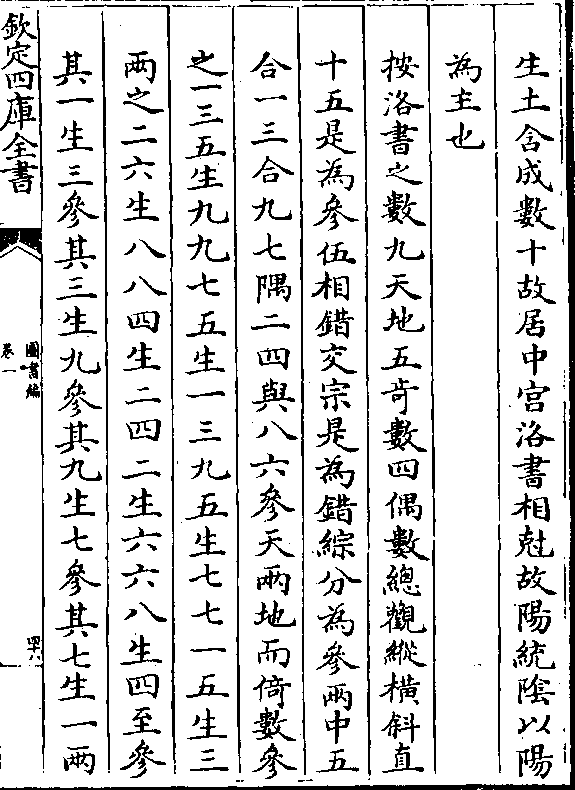 生土含成數十故居中宮洛書相尅故陽統隂以陽
為主也
按洛書之數九天地五奇數四偶數總觀縱橫斜直
十五是為參伍相錯交宗是為錯綜分為參兩中五
合一三合九七隅二四與八六參天兩地而倚數參
之一三五生九九七五生一三九五生七七一五生三
兩之二六生八八四生二四二生六六八生四至參
其一生三參其三生九參其九生七參其七生一兩
欽定四庫全書
圖書編
卷一
四十六